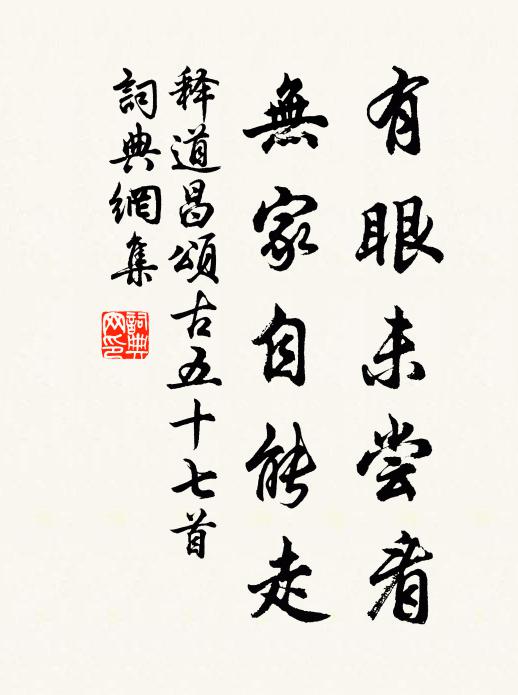 有眼未尝看
無家自能走
释道昌頌古五十七首
詞典網集
詞典网印